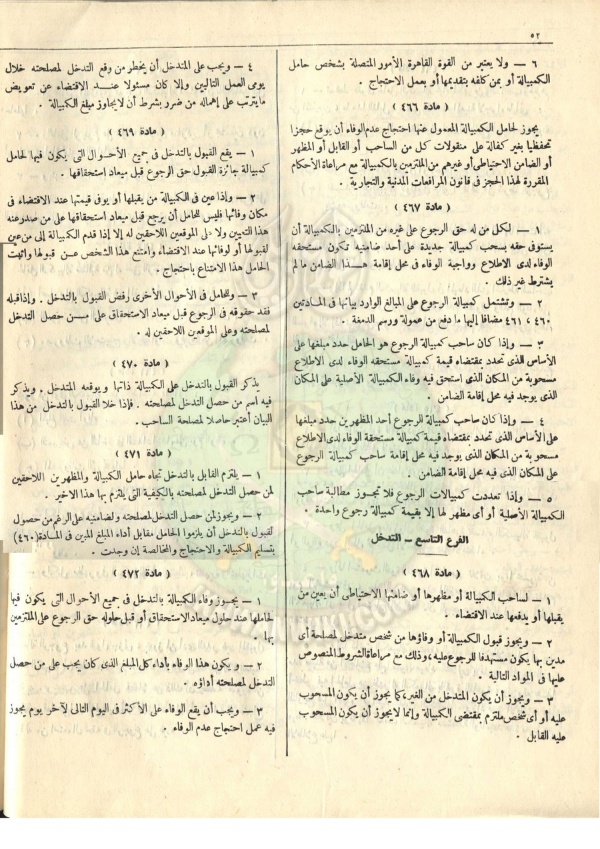 ٥٢
٦ — ولا يعتبر من القوة القاهرة الأمور المتصلة بشخص حامل
الكمبيالة أو بمن كلفه بتقديمها أو بعمل الاحتجاج .
( مادة ٤٦٦ )
يجوز لحامل الكمبيالة المعمول عنها احتجاج عدم الوفاء أن يوقع حجزا
تحفظيا بغير كفالة على منقولات كل من الساحب أو القابل أو المظهر
أو الضامن الاحتياطى أو غيرهم من الملتزمين بالكمبيالة مع مراعاة الأحكام
المقررة لهذا الحجز فى قانون المرافعات المدنية والتجارية .
( مادة ٤٦٧ )
١ — لكل من له حق الرجوع على غيره من الملتزمين بالكمبيالة أن
يستوفى حقه بسحب كمبيالة جديدة على أحد ضامنيه تكون مستحقة
الوفاء لدى الاطلاع وواجبة الوفاء فى محل إقامة هذا الضامن مالم
يشترط غير ذلك .
٢ — وتشتمل كمبيالة الرجوع على المبالغ الوارد بيانها فى المادتين
٤٦٠ ، ٤٦١ مضافا إليها ما دفع من عمولة ورسم الدمغة .
٣ — وإذا كان ساحب كمبيالة الرجوع هو الحامل حدد مبلغها على
الأساس الذى تحدد بمقتضاه قيمة كمبيالة مستحقة الوفاء لدى الاطلاع
مسحوبة من المكان الذى استحق فيه وفاء الكمبيالة الأصلية على المكان
الذى يوجد فيه محل إقامة الضامن .
٤ — وإذا كان ساحب كمبيالة الرجوع أحد المظهرين حدد مبلغها
على الأساس الذى تحدد بمقتضاه قيمة كمبيالة مستحقة الوفاء لدى الاطلاع
مسحوبة من المكان الذى يوجد فيه محل إقامة ساحب كمبيالة الرجوع
على المكان الذى فيه محل إقامة الضامن .
٥ — وإذا تعددت كمبيالات الرجوع فلا تجوز مطالبة ساحب
الكمبيالة الأصلية أو أى مظهر لها إلا بقيمة كمبيالة رجوع واحدة .
الفرع التاسع — التدخل
( مادة ٤٦٨ )
١ — لساحب الكمبيالة أو مظهرها أو ضامنها الاحتياطى أن يعين من
يقبلها أو يدفعها عند الاقتضاء .
٢ — ويجوز قبول الكمبيالة أو وفاؤها من شخص متدخل لمصلحة أى
مدين بها يكون مستهدفا للرجوع عليه، وذلك مع مراعاة الشروط المنصوص
عليها فى المواد التالية .
٣ — ويجوز أن يكون المتدخل من الغير، كما يجوز أن يكون المسحوب
عليه أو أى شخص ملتزم بمقتضى الكمبيالة وإنما لا يجوز أن يكون المسحوب
عليه القابل .
٤ — ويجب على المتدخل أن يخطر من وقع التدخل لمصلحته خلال
يومى العمل التاليين وإلا كان مسئولا عند الاقتضاء عن تعويض
ما يترتب على إهماله من ضرر بشرط أن لا يجاوز مبلغ الكمبيالة .
( مادة ٤٦٩ )
١ — يقع القبول بالتدخل فى جميع الأحوال التى يكون فيها لحامل
كمبيالة جائزة القبول حق الرجوع قبل ميعاد استحقاقها .
٢ — وإذا عين فى الكمبيالة من يقبلها أو يوفى قيمتها عند الاقتضاء فى
مكان وفائها فليس للحامل أن يرجع قبل ميعاد استحقاقها على من صدر عنه
هذا التعيين ولا على الموقعين اللاحقين له إلا إذا قدم الكمبيالة إلى من عين
لقبولها أو لوفائها عند الاقتضاء وامتنع هذا الشخص عن قبولها واثبت
الحامل هذا الامتناع باحتجاج .
٣ — وللحامل فى الأحوال الأخرى رفض القبول بالتدخل . وإذا قبله
فقد حقوقه فى الرجوع قبل ميعاد الاستحقاق على من حصل التدخل
لمصلحته وعلى الموقعين اللاحقين له .
( مادة ٤٧٠ )
يذكر القبول بالتدخل على الكمبيالة ذاتها ويوقعه المتدخل . ويذكر
فيه اسم من حصل التدخل لمصلحته . فإذا خلا القبول بالتدخل من هذا
البيان أعتبر حاصلا لمصلحة الساحب .
( مادة ٤٧١ )
١ — يلتزم القابل بالتدخل تجاه حامل الكمبيالة والمظهرين اللاحقين
لمن حصل التدخل لمصلحته بالكيفية التى يلتزم بها هذا الاخير .
٢ — ويجوز لمن حصل التدخل لمصلحته ولضامنيه على الرغم من حصول
القبول بالتدخل أن يلزموا الحامل مقابل أداء المبلغ المبين فى المادة (٤٦٠)
بتسليم الكمبيالة والاحتجاج والمخالصة إن وجدت .
( مادة ٤٧٢ )
١ — يجوز وفاء الكمبيالة بالتدخل فى جميع الأحوال التى يكون فيها
لحاملها عند حلول ميعاد الاستحقاق أو قبل حلوله حق الرجوع على الملتزمين
بها .
٢ — ويكون هذا الوفاء بأداء كل المبلغ الذى كان يجب على من حصل
التدخل لمصلحته أداؤه .
٣ — ويجب أن يقع الوفاء على الأكثر فى اليوم التالى لآخر يوم يجوز
فيه عمل احتجاج عدم الوفاء .